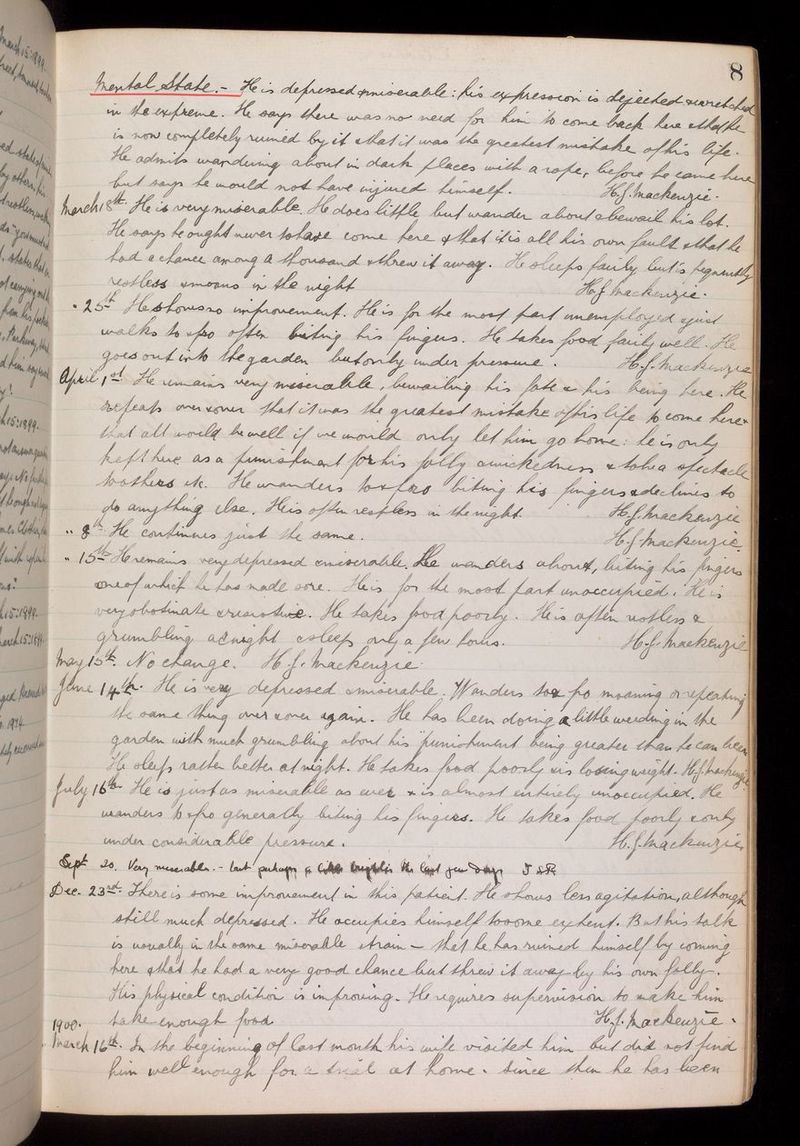 8
Mental State. - He is depressed & miserable: his expression is dejected & wretched
in the extreme. He says there was no need for him to come back here & that he
is now completely ruined by it & that it was the greatest mistake of his life.
He admits wandering about in dark places with a rope, before he came here
but says he would not have injured himself. H.J. Mackenzie.
March 18th He is very miserable. He does little but wander about & bewail his lot.
He says he ought never to have come here & that it is all his own fault & that he
had a chance among a thousand & threw it away. He sleeps fairly but is frequently
restless & moans in the night H.J. Mackenzie.
" 25th He shows no improvement. He is for the most part unemployed & just
walks to & fro often biting his fingers. He takes food fairly well. He
goes out into the garden but only under pressure. H.J. Mackenzie
April 1st He remains very miserable, bewailing his fate & his being here. He
repeats over & over that it was the greatest mistake of his life to come here &
that all would be well if we would only let him go home: he is only
kept here as a punishment for his folly & wickedness & to be a spectacle
to others etc. He wanders to & fro biting his fingers & declines to
do anything else. He is often restless in the night. H.J. Mackenzie
" 8th He continues just the same. H.J. Mackenzie.
" 15th He remains very depressed & miserable. He wanders about, biting his fingers
one of which he has made sore. He is for the most part unoccupied. He is
very obstinate & resistive. He takes food poorly. He is often restless &
grumbling at night & sleeps only a few hours. H.J. Mackenzie
May 15th. No change. H.J. Mackenzie.
June 14th. He is very depressed & miserable. Wanders to & fro moaning or repeating
the same thing over & over again. He has been doing a little weeding in the
garden with much grumbling about his punishment being greater than he can bear.
He sleeps rather better at night. He takes food poorly & is losing weight. H.J. Mackenzie
July 16th. He is just as miserable as ever & is almost entirely unoccupied. He
wanders to & fro generally biting his fingers. He takes food poorly & only
under considerable pressure. H.J. Mackenzie
Sept 20. Very miserable. - but perhaps a little brighter the last few days
Dec. 23rd. There is some improvement in this patient. He shows less agitation, although
still much depressed. He occupies himself to some extent. But his talk
is usually in the same miserable strain - that he has ruined himself by coming
here & that he had a very good chance but threw it away by his own folly.
His physical condition is improving. He requires supervision to make him
take enough food H.J. Mackenzie.
1900.
March 16th. In the beginning of last month his wife visited him but did not find
him well enough for a trial at home. Since then he has been